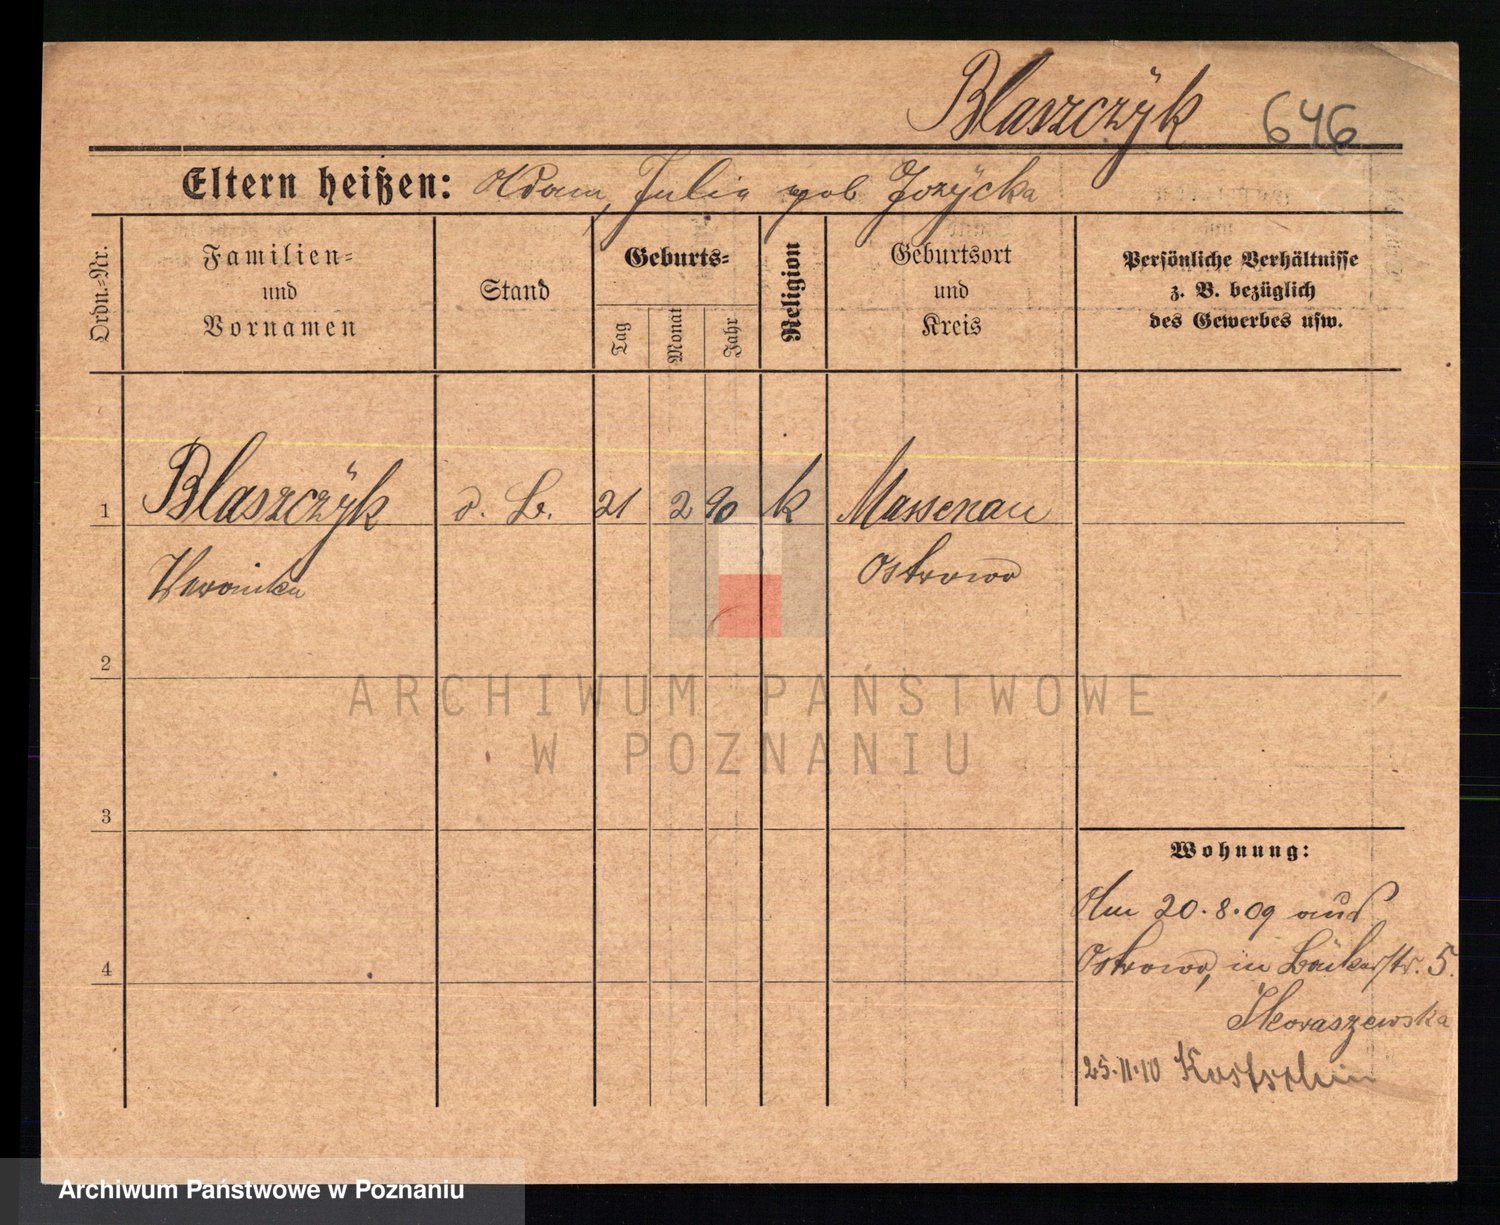 Blaszczÿk 646
Eltern heißen: Adam, Julia geb Jozÿcka
Ordn.-Nr.
Familien-
und
Vornamen
Stand
Geburts-
Tag
Monat
Jahr
Religion
Geburtsort
und
Kreis
Persönliche Verhältnisse
z. B. bezüglich
des Gewerbes usw.
1 Blaszczÿk d. B. 21 2 90 k Massenau
Weronika Ostrowo
2
ARCHIWUM PAŃSTWOWE
W POZNANIU
3
Wohnung:
Am 20.8.09 aus
Ostrowo, in Bäckerstr. 5.
4
Skoraszewska
25.11.10 Kostschin
Archiwum Państwowe w Poznaniu